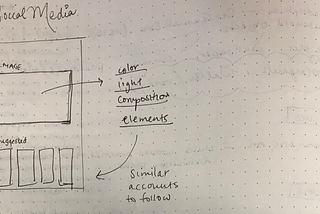 Social Media
IMAGE
color
light
composition
elements
suggested
Similar
accounts
to follow